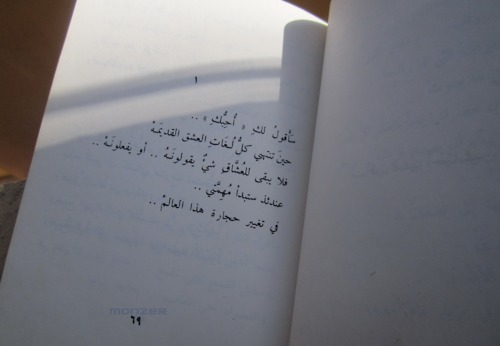 ١
سَأقولُ لكِ « أُحِبُّكِ » ..
حينَ تنتهي كلُّ لُغَاتِ العشق القديمَهْ
فلا يبقى للعُشَّاقِ شيءٌ يقولونَهُ .. أو يفعلونَهْ ..
عندئذ ستبدأ مُهِمَّتي ..
في تغيير حجارة هذا العالمْ ..
٦٩